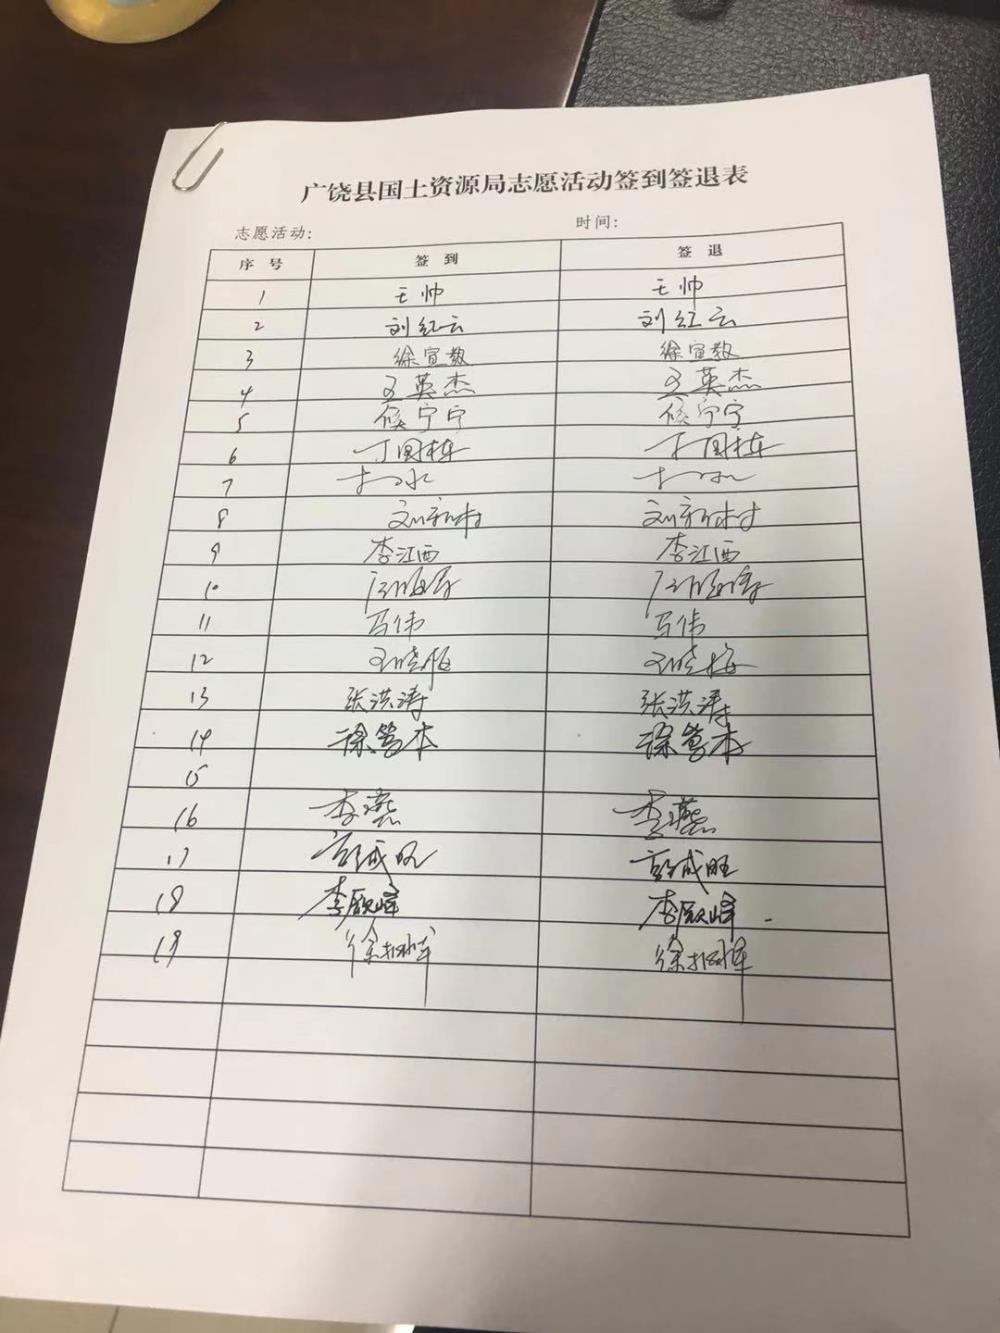 广饶县国土资源局志愿活动签到签退表
志愿活动: 时间:
序号 签到 签退
1 王帅 王帅
2 刘红云 刘红云
3 徐宣教 徐宣教
4 王英杰 王英杰
5 侯宁宁 侯宁宁
6 丁国栋 丁国栋
7
8 刘新村 刘新村
9 李江西 李江西
10
11 马伟 马伟
12 王晓梅 王晓梅
13 张洪涛 张洪涛
14 徐 本 徐 本
15
16 李燕 李燕
17 成旺 成旺
18 李 峰 李 峰
19 徐 徐